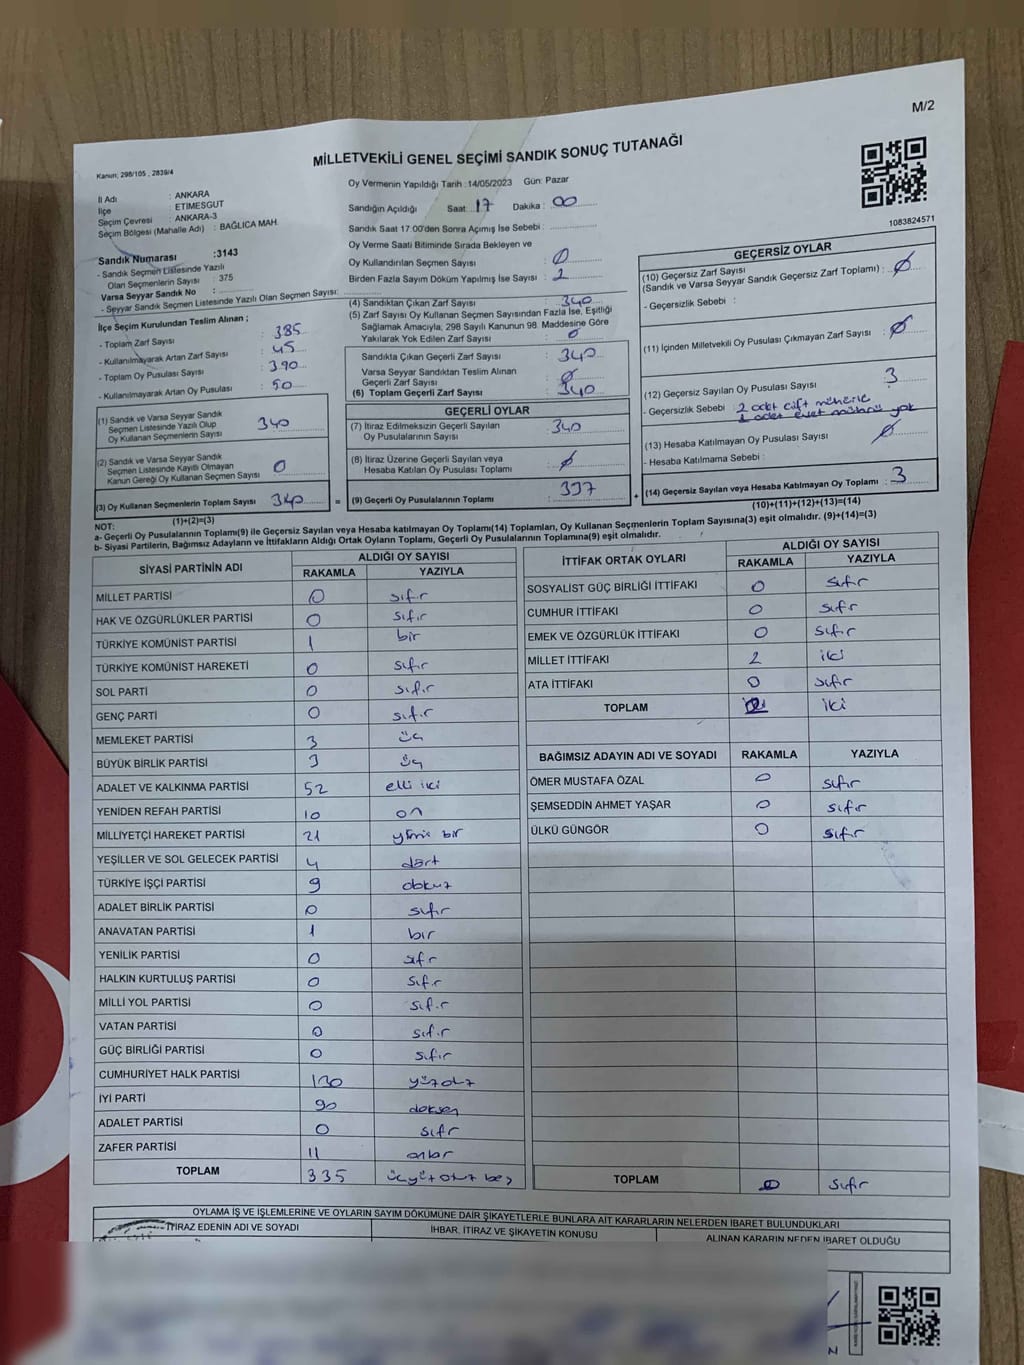 M/2
MİLLETVEKİLİ GENEL SEÇİMİ SANDIK SONUÇ TUTANAĞI
Kanun; 298/105 , 2839/4
İl Adı : ANKARA
İlçe : ETİMESGUT
Seçim Çevresi : ANKARA-3
Seçim Bölgesi (Mahalle Adı) : BAĞLICA MAH.
Sandık Numarası :3143
- Sandık Seçmen Listesinde Yazılı
Olan Seçmenlerin Sayısı : 375
Varsa Seyyar Sandık No :
- Seyyar Sandık Seçmen Listesinde Yazılı Olan Seçmen Sayısı:
İlçe Seçim Kurulundan Teslim Alınan ;
- Toplam Zarf Sayısı : 385
- Kullanılmayarak Artan Zarf Sayısı : 45
- Toplam Oy Pusulası Sayısı : 390
- Kullanılmayarak Artan Oy Pusulası : 50
(1) Sandık ve Varsa Seyyar Sandık
Seçmen Listesinde Yazılı Olup
Oy Kullanan Seçmenlerin Sayısı 340
(2) Sandık ve Varsa Seyyar Sandık
Seçmen Listesinde Kayıtlı Olmayan
Kanun Gereği Oy Kullanan Seçmen Sayısı 0
(3) Oy Kullanan Seçmenlerin Toplam Sayısı 340 =
(1)+(2)=(3)
Oy Vermenin Yapıldığı Tarih :14/05/2023 Gün: Pazar
Sandığın Açıldığı Saat: 17 Dakika : 00
Sandık Saat 17.00'den Sonra Açımış İse Sebebi :
Oy Verme Saati Bitiminde Sırada Bekleyen ve
Oy Kullandırılan Seçmen Sayısı : 0
Birden Fazla Sayım Döküm Yapılmış İse Sayısı : 2
(4) Sandıktan Çıkan Zarf Sayısı : 340
(5) Zarf Sayısı Oy Kullanan Seçmen Sayısından Fazla İse, Eşitliği
Sağlamak Amacıyla; 298 Sayılı Kanunun 98. Maddesine Göre
Yakılarak Yok Edilen Zarf Sayısı : 0
Sandıkta Çıkan Geçerli Zarf Sayısı : 340
Varsa Seyyar Sandıktan Teslim Alınan
Geçerli Zarf Sayısı : Ø
(6) Toplam Geçerli Zarf Sayısı : 340
GEÇERLİ OYLAR
(7) İtiraz Edilmeksizin Geçerli Sayılan
Oy Pusulalarının Sayısı : 340
(8) İtiraz Üzerine Geçerli Sayılan veya
Hesaba Katılan Oy Pusulası Toplamı : Ø
(9) Geçerli Oy Pusulalarının Toplamı : 337 +
1083824571
GEÇERSİZ OYLAR
(10) Geçersiz Zarf Sayısı
(Sandık ve Varsa Seyyar Sandık Geçersiz Zarf Toplamı) : Ø
- Geçersizlik Sebebi :
(11) İçinden Milletvekili Oy Pusulası Çıkmayan Zarf Sayısı : Ø
(12) Geçersiz Sayılan Oy Pusulası Sayısı : 3
- Geçersizlik Sebebi : 2 adet çift mühürlü
1 adet evet mührü yok
(13) Hesaba Katılmayan Oy Pusulası Sayısı : Ø
- Hesaba Katılmama Sebebi :
(14) Geçersiz Sayılan veya Hesaba Katılmayan Oy Toplamı : 3
(10)+(11)+(12)+(13)=(14)
NOT:
a- Geçerli Oy Pusulalarının Toplamı(9) ile Geçersiz Sayılan veya Hesaba katılmayan Oy Toplamı(14) Toplamları, Oy Kullanan Seçmenlerin Toplam Sayısına(3) eşit olmalıdır. (9)+(14)=(3)
b- Siyasi Partilerin, Bağımsız Adayların ve İttifakların Aldığı Ortak Oyların Toplamı, Geçerli Oy Pusulalarının Toplamına(9) eşit olmalıdır.
SİYASİ PARTİNİN ADI ALDIĞI OY SAYISI
RAKAMLA YAZIYLA
MİLLET PARTİSİ 0 sıfır
HAK VE ÖZGÜRLÜKLER PARTİSİ 0 sıfır
TÜRKİYE KOMÜNİST PARTİSİ 1 bir
TÜRKİYE KOMÜNİST HAREKETİ 0 sıfır
SOL PARTİ 0 sıfır
GENÇ PARTİ 0 sıfır
MEMLEKET PARTİSİ 3 üç
BÜYÜK BİRLİK PARTİSİ 3 üç
ADALET VE KALKINMA PARTİSİ 52 elli iki
YENİDEN REFAH PARTİSİ 10 on
MİLLİYETÇİ HAREKET PARTİSİ 21 yirmi bir
YEŞİLLER VE SOL GELECEK PARTİSİ 4 dört
TÜRKİYE İŞÇİ PARTİSİ 9 dokuz
ADALET BİRLİK PARTİSİ 0 sıfır
ANAVATAN PARTİSİ 1 bir
YENİLİK PARTİSİ 0 sıfr
HALKIN KURTULUŞ PARTİSİ 0 sıfır
MİLLİ YOL PARTİSİ 0 sıfır
VATAN PARTİSİ 0 sıfır
GÜÇ BİRLİĞİ PARTİSİ 0 sıfır
CUMHURİYET HALK PARTİSİ 130 yüzotuz
İYİ PARTİ 90 doksan
ADALET PARTİSİ 0 sıfır
ZAFER PARTİSİ 11 onbir
TOPLAM 335 üçyüzotuz beş
İTTİFAK ORTAK OYLARI ALDIĞI OY SAYISI
RAKAMLA YAZIYLA
SOSYALİST GÜÇ BİRLİĞİ İTTİFAKI 0 sıfır
CUMHUR İTTİFAKI 0 sıfır
EMEK VE ÖZGÜRLÜK İTTİFAKI 0 sıfır
MİLLET İTTİFAKI 2 iki
ATA İTTİFAKI 0 sıfır
TOPLAM 2 iki
BAĞIMSIZ ADAYIN ADI VE SOYADI RAKAMLA YAZIYLA
ÖMER MUSTAFA ÖZAL 0 sıfır
ŞEMSEDDİN AHMET YAŞAR 0 sıfır
ÜLKÜ GÜNGÖR 0 sıfır
TOPLAM 0 sıfır
OYLAMA İŞ VE İŞLEMLERİNE VE OYLARIN SAYIM DÖKÜMÜNE DAİR ŞİKAYETLERLE BUNLARA AİT KARARLARIN NELERDEN İBARET BULUNDUKLARI
İTİRAZ EDENİN ADI VE SOYADI İHBAR, İTİRAZ VE ŞİKAYETİN KONUSU ALINAN KARARIN NEDEN İBARET OLDUĞU